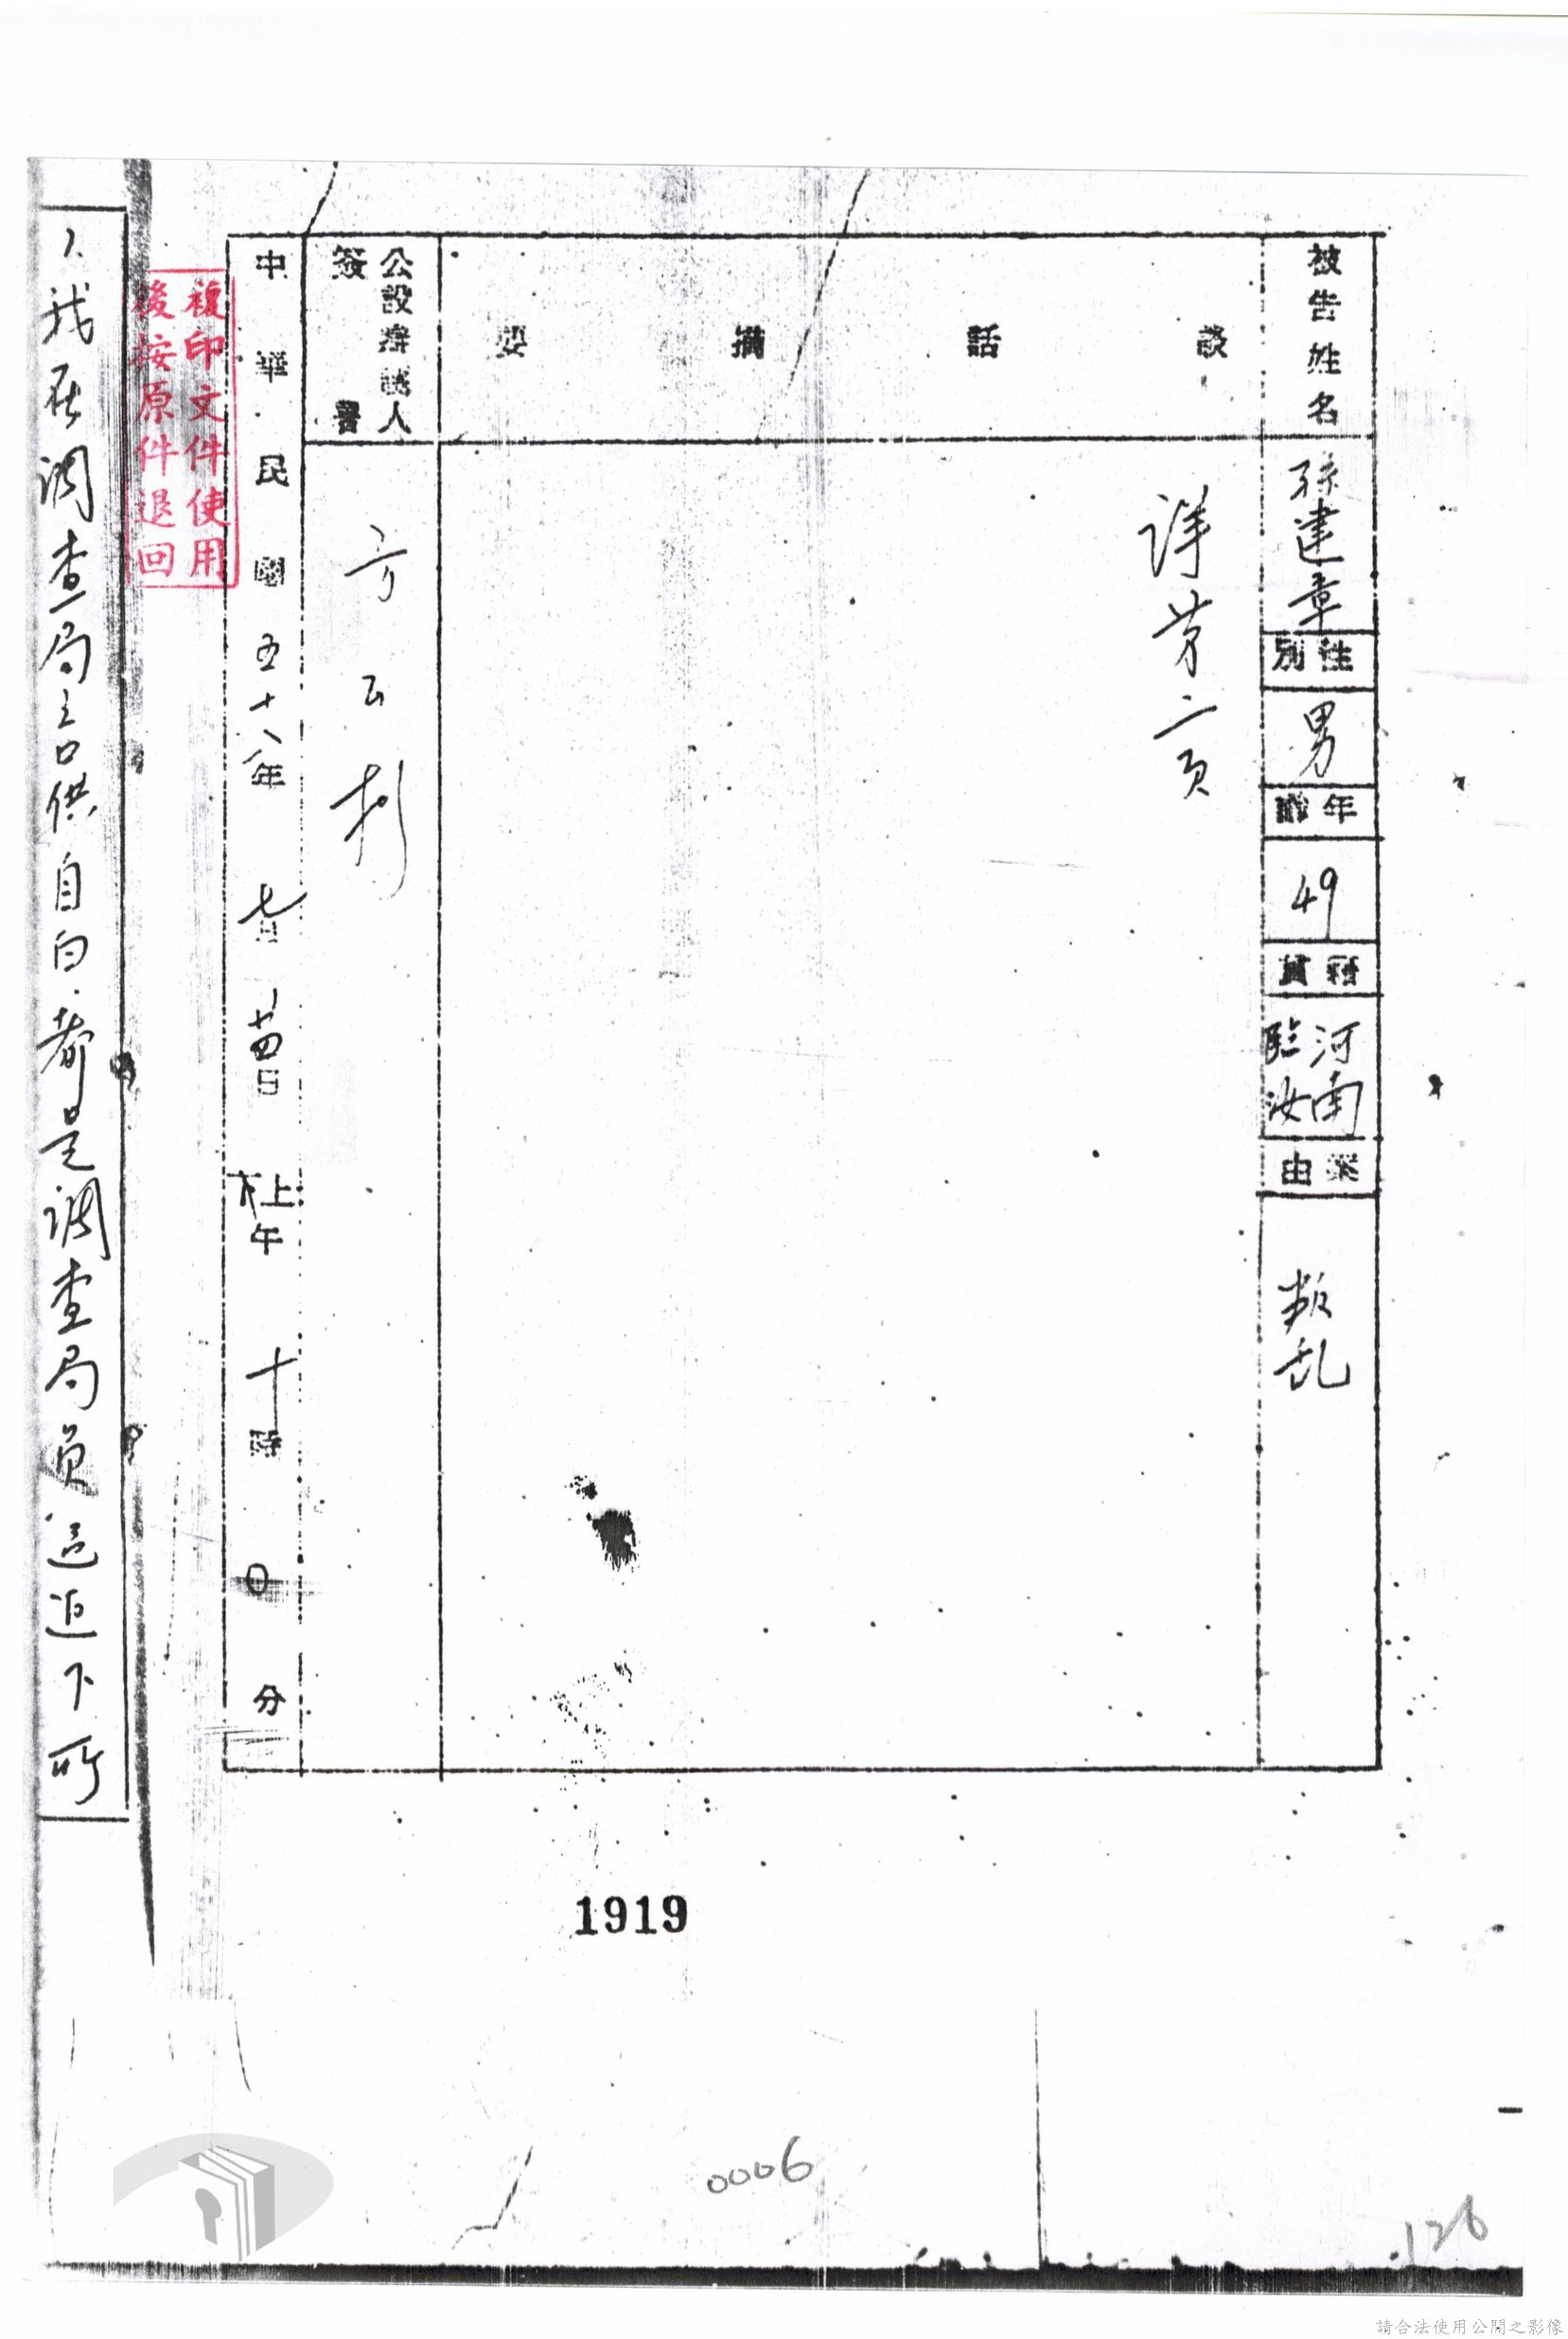 被告姓名
孫建章
性別
男
年齡
49
籍貫
河南
臨汝
案由
叛乱
談話摘要
詳苐二頁
公設辯護人
簽署
中華民國五十八年七月
日
上
午十時0分
複印文件使用
後按原件退回
1、我在調查局之口供自白都是調查局員逼迫下所
1919
0006
126
請合法使用公開之影像